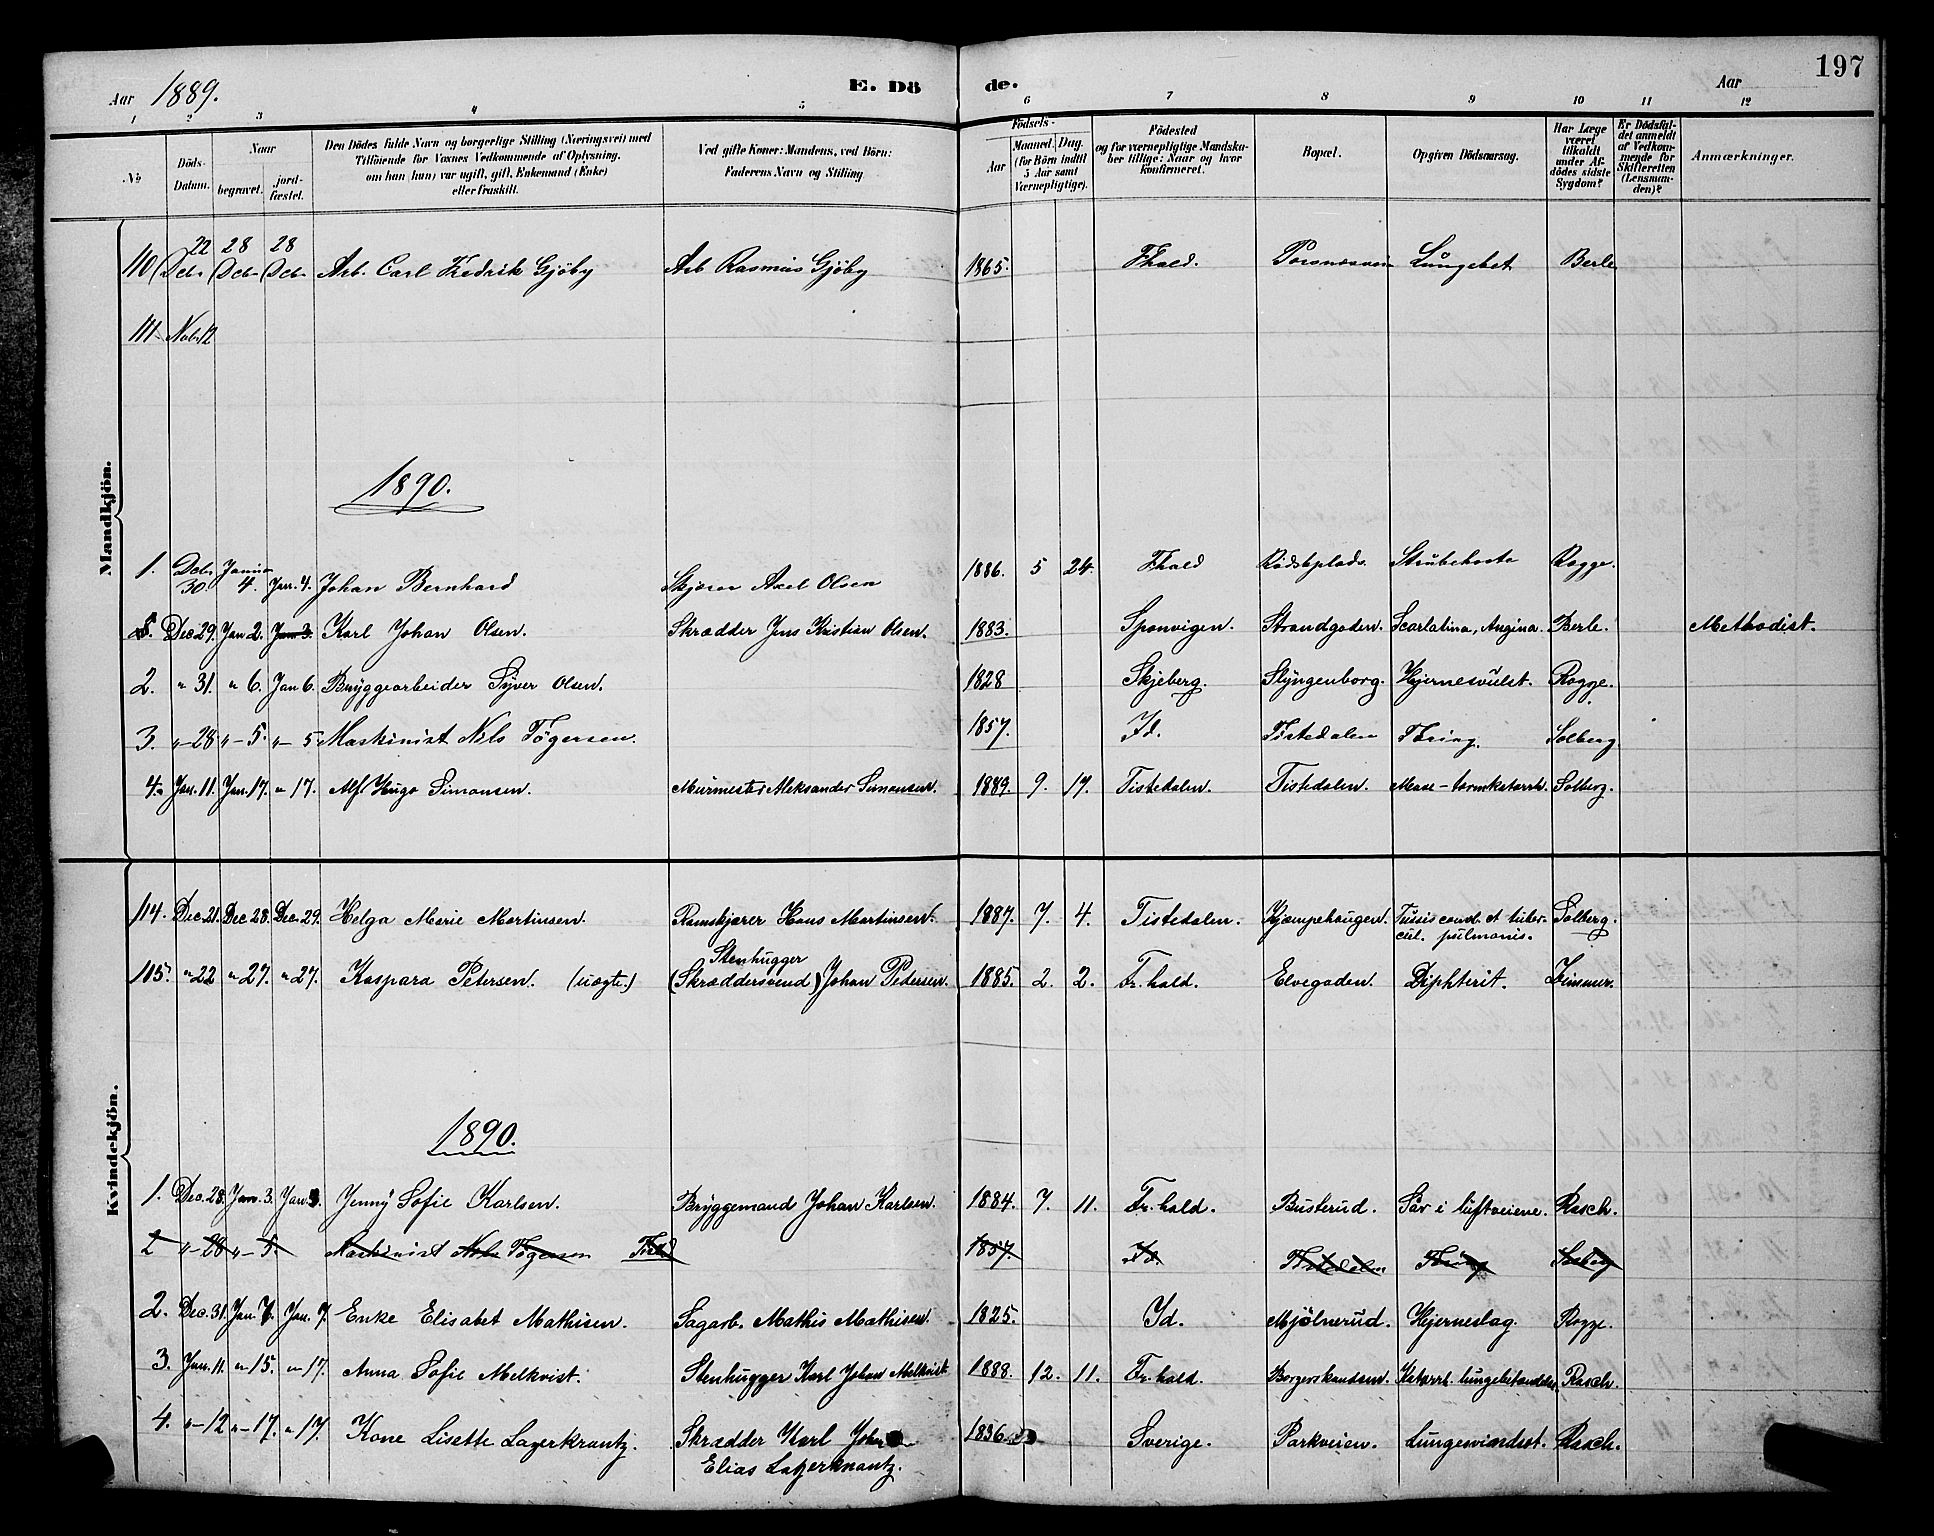 197
Aar 1889. E. Dö de. Aar
1 2 3 4 5 6 7 8 9 10 11 12
№ Döds-Datum. Naar begravet. jordfæstet. Den Dödes fulde Navn og borgerlige Stilling (Næringsvei) med Tilföiende for Voxnes Vedkommende af Oplysning, om han (hun) var ugift, gift, Enkemand (Enke) eller fraskilt. Ved gifte Koner: Mandens, ved Börn: Faderens Navn og Stilling Födsels- Aar Maaned. Dag. (for Börn indtil 5 Aar samt Værnepligtige). Födested og for værnepligtige Mandskaber tillige: Naar og hvor konfirmeret. Bopæl. Opgiven Dödsaarsag. Har Læge været tilkaldt under Afdödes sidste Sygdom? Er Dödsfaldet anmeldt af Vedkommende for Skifteretten (Lensmanden)? Anmærkninger.
Mandkjön.
22 28 28
110 Dcbr Dcbr Dcbr Arb. Carl Fredrik Gjöby Arb Rasmus Gjöby 1865. Fhald. Lungebet Berle
111 Nvbr 12
1890.
1. Dcbr 30. Januar 4. Jan. 4. Johan Bernhard Skjærer Axel Olsen 1886. 5 24. Fhald Rödsbplads. Strubehoste Rogge.
5. Dec. 29. Jan 2. Jan 3. Karl Johan Olsen. Skrædder Jens Kristian Olsen. 1883. Sponvigen. Strandgaden. Scarlatina, Angina. Berle. Methodist.
2. " 31. " 6. Jan 6. Bryggearbeider Syver Olsen. 1828 Skjeberg. Slyngenborg. Hjernesvulst. Rogge.
3. "-28 "-5. "-5 Maskinist Nils Tögersen. 1857. Id. Tistedalen Tæring. Solberg
4. Jan. 11. Jan. 17. " 17. Alf Hugo Simonsen. Murmester Aleksander Simonsen. 1889. 9. 19. Tistedalen. Tistedalen. Mave-tarmkatarrh. Solberg.
Kvindekjön.
114. Dec. 21. Dec 28. Dec. 29. Helga Marie Martinsen. Ramskjærer Hans Martinsen. 1887. 7. 4. Tistedalen. Kjæmpehaugen. Tussis conv. et tubercul. pulmonis. Solberg.
Stenhugger
115. " 22 " 27. " 27. Kaspara Petersen. (uægte.) (Skræddersvend) Johan Pedersen. 1885. 2. 2. Fr.hald. Elvegaden. Diphterit. Zimmer.
1890.
1. Dec. 28. Jan. 3. Jan. 3. Jenny Sofie Karlsen. Bryggemand Johan Karlsen. 1884. 7. 11. Fr.hald. Busterud. Sår i luftveiene. Rasch.
2 "-28 "-5. Maskinist Nils Tögersen 1857. Id. Tistedalen Tæring Solberg
2. Dec. 31. Jan. 7. Jan. 7. Enke Elisabet Mathisen. Sagarb. Mathis Mathisen. 1825. Id. Mjölnerud. Hjerneslag. Rogge.
3. Jan. 11. "-15. "-17. Anna Sofie Melkvist. Stenhugger Karl Johan Melkvist. 1888. 12. 11. Fr.hald. Borgerskandsen. Katarrh. lungebetændelse. Rasch.
4. "-12 "-17. " 17. Kone Lisette Lagerkrantz. Skrædder Karl Johan 1836. Sverige. Parkveien. Lungesvindsot. Rasch.
Elias Lagerkrantz.